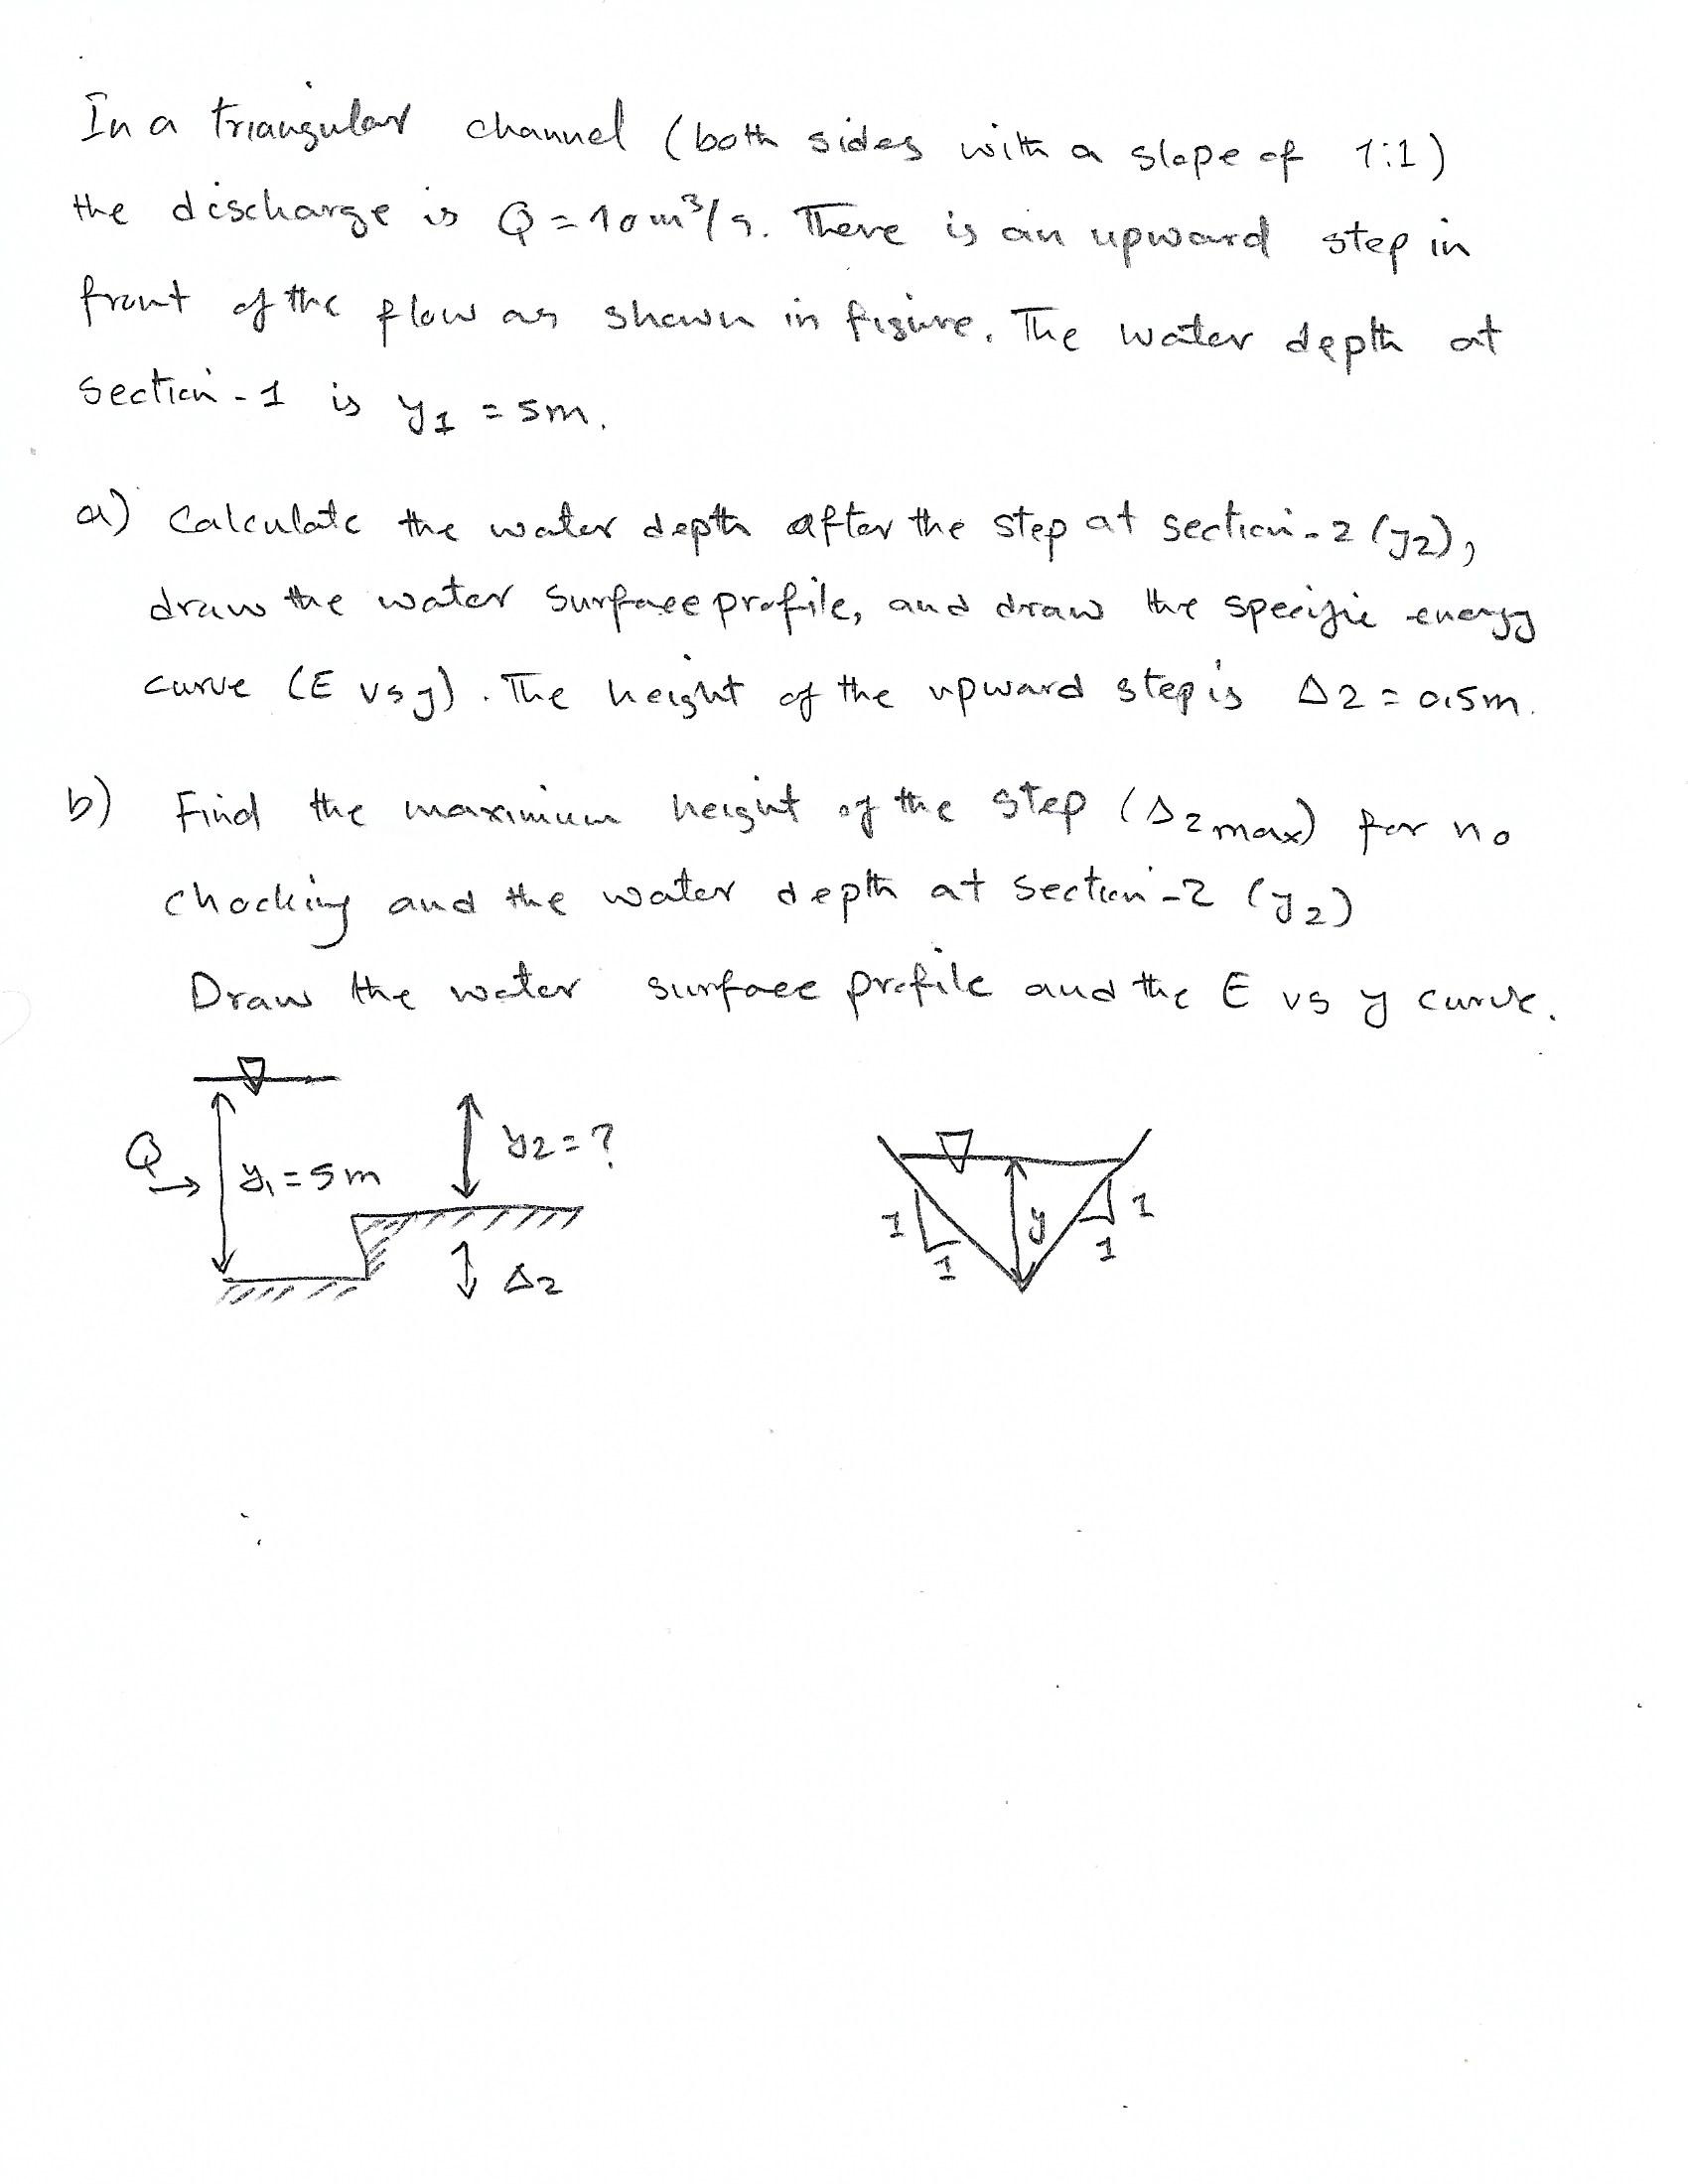 In a triangular channel (both sides with a slope of 1:1)
the discharge is Q = 10 m³/s. There is an upward step in
front of the flow as shown in figure. The water depth at
section-1 is y₁ = 5m.
a) Calculate the water depth after the step at section-2 (y₂),
draw the water surface profile, and draw the specific energy
curve (E vs y). The height of the upward step is Δz = 0.5m.
b) Find the maximum height of the step (Δz max) for no
chocking and the water depth at section-2 (y₂)
Draw the water surface profile and the E vs y curve.
Q
y₁ = 5m
y₂ = ?
Δz
1
1
y
1
1